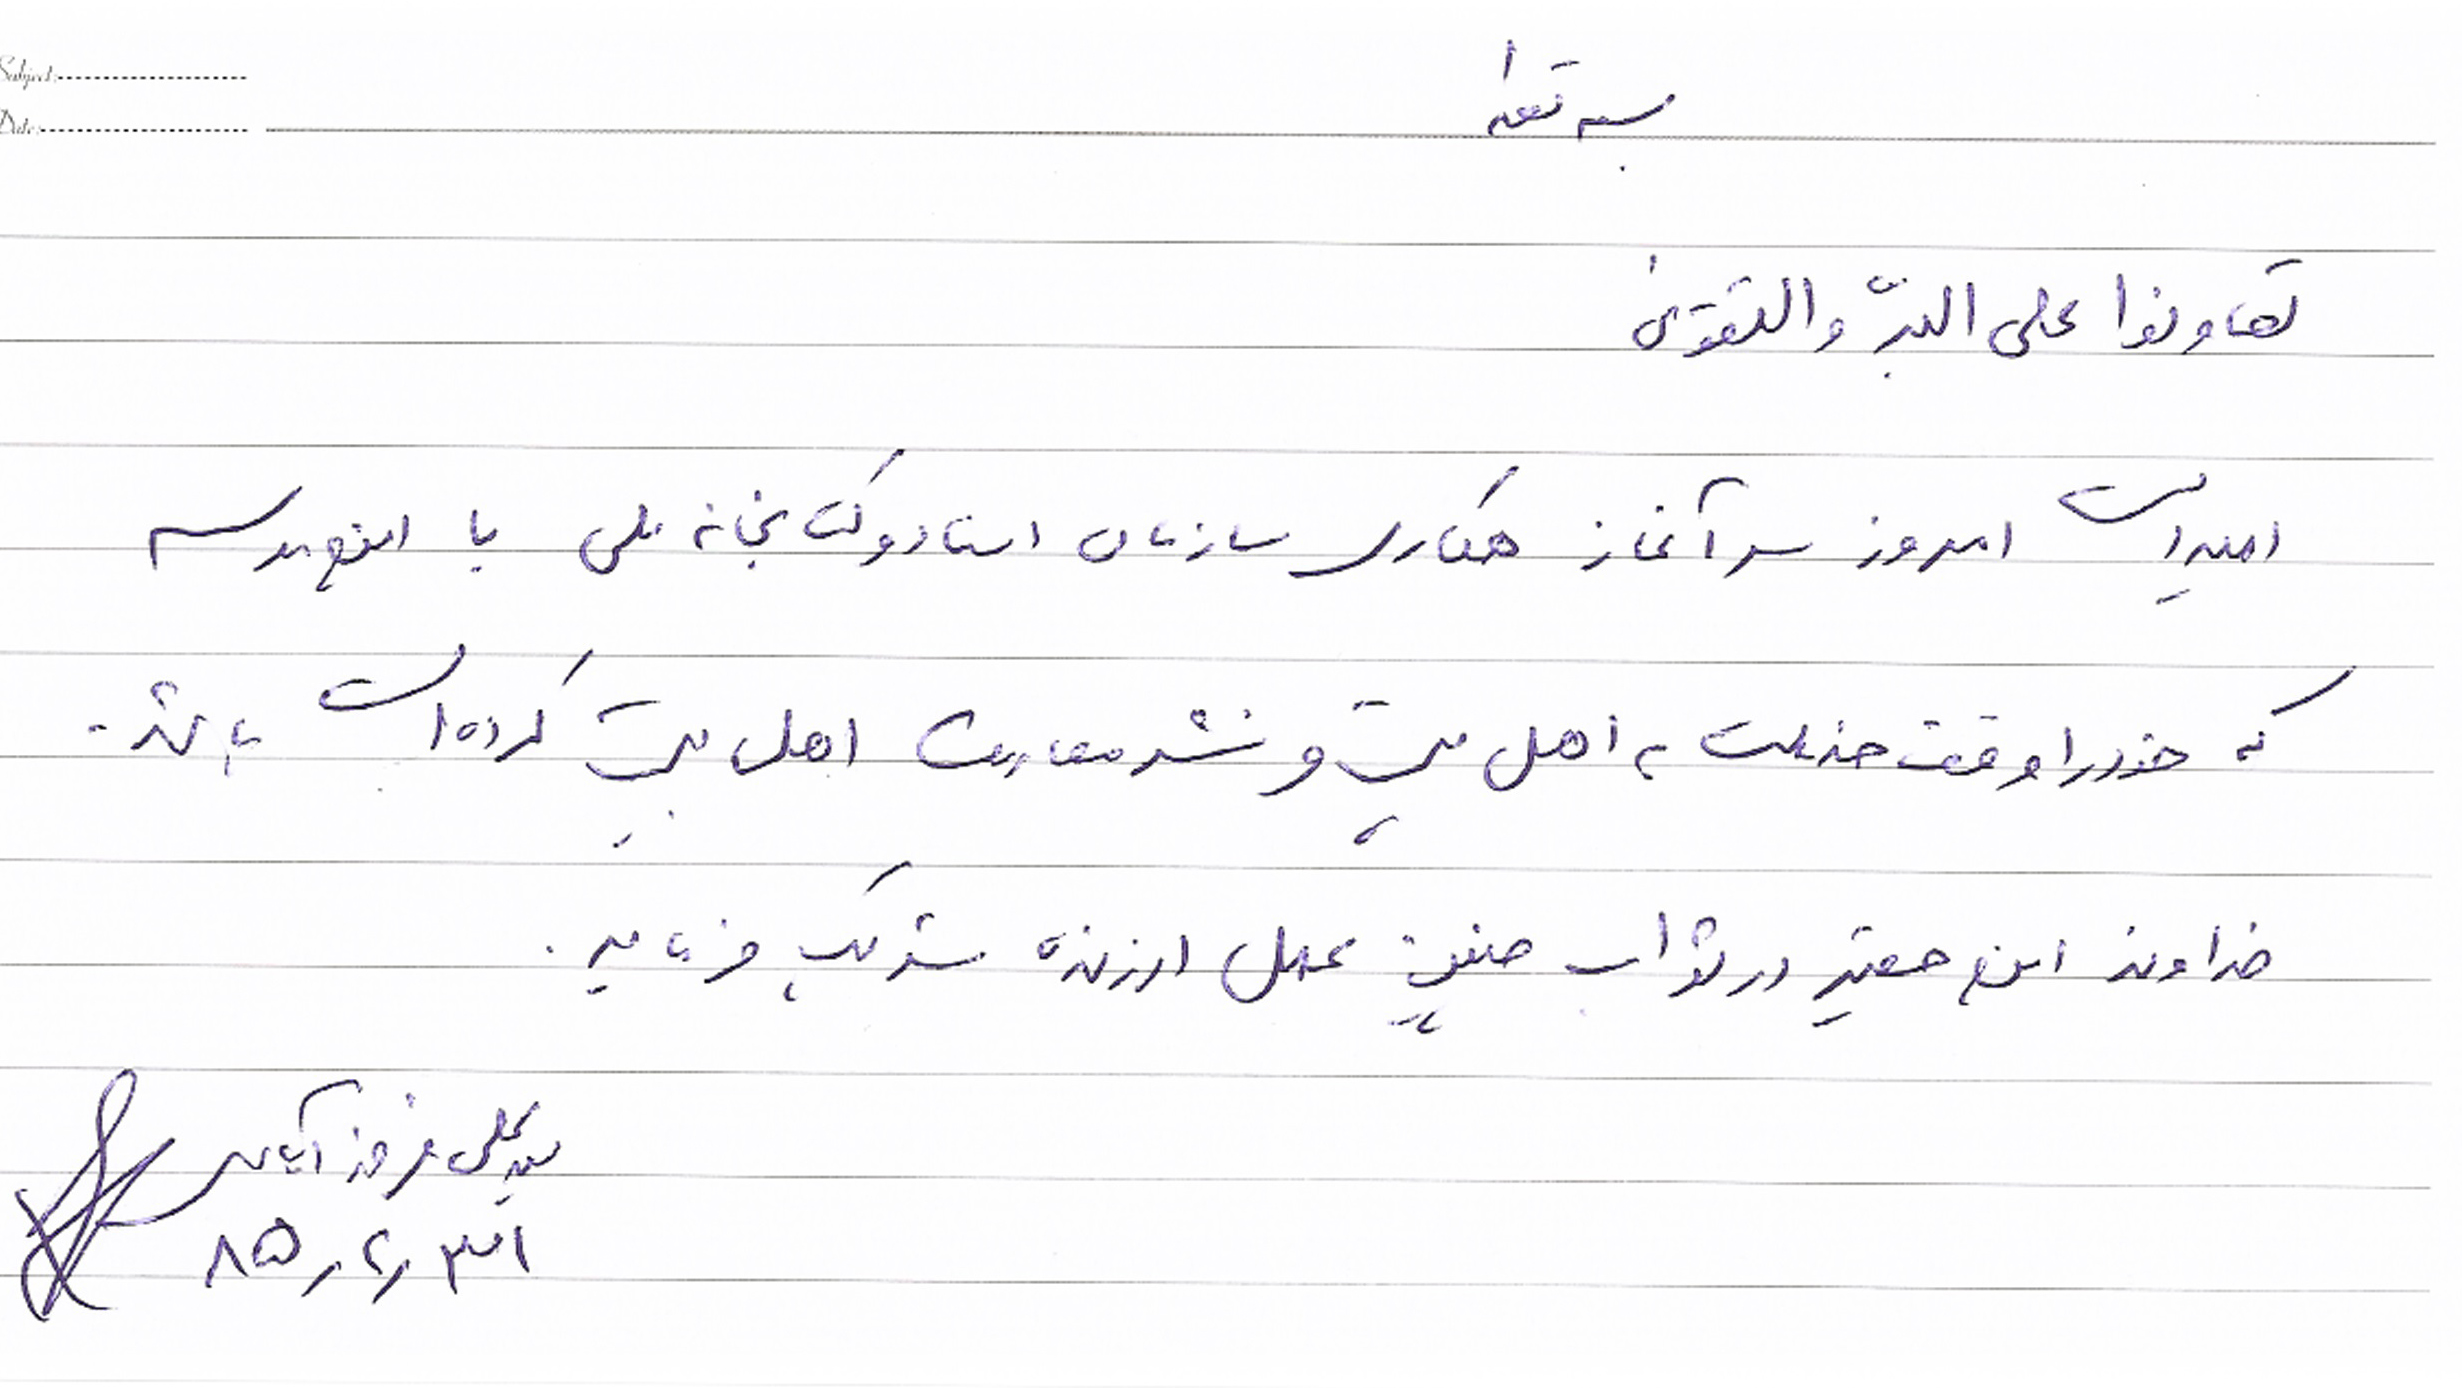 Subject:
Date:
بسمه تعالی
تعاونوا علی البرّ والتقوی
امید است امروز سرآغاز همکاری سازمان اسناد و کتابخانه ملی با این مدرسه
که خود را وقف خدمت به اهل بیت و نشر معارف اهل بیت کرده است باشد.
خداوند این حقیر در ثواب چنین عمل ارزنده شریک فرماید.
سید علی
۳۱
۸۵